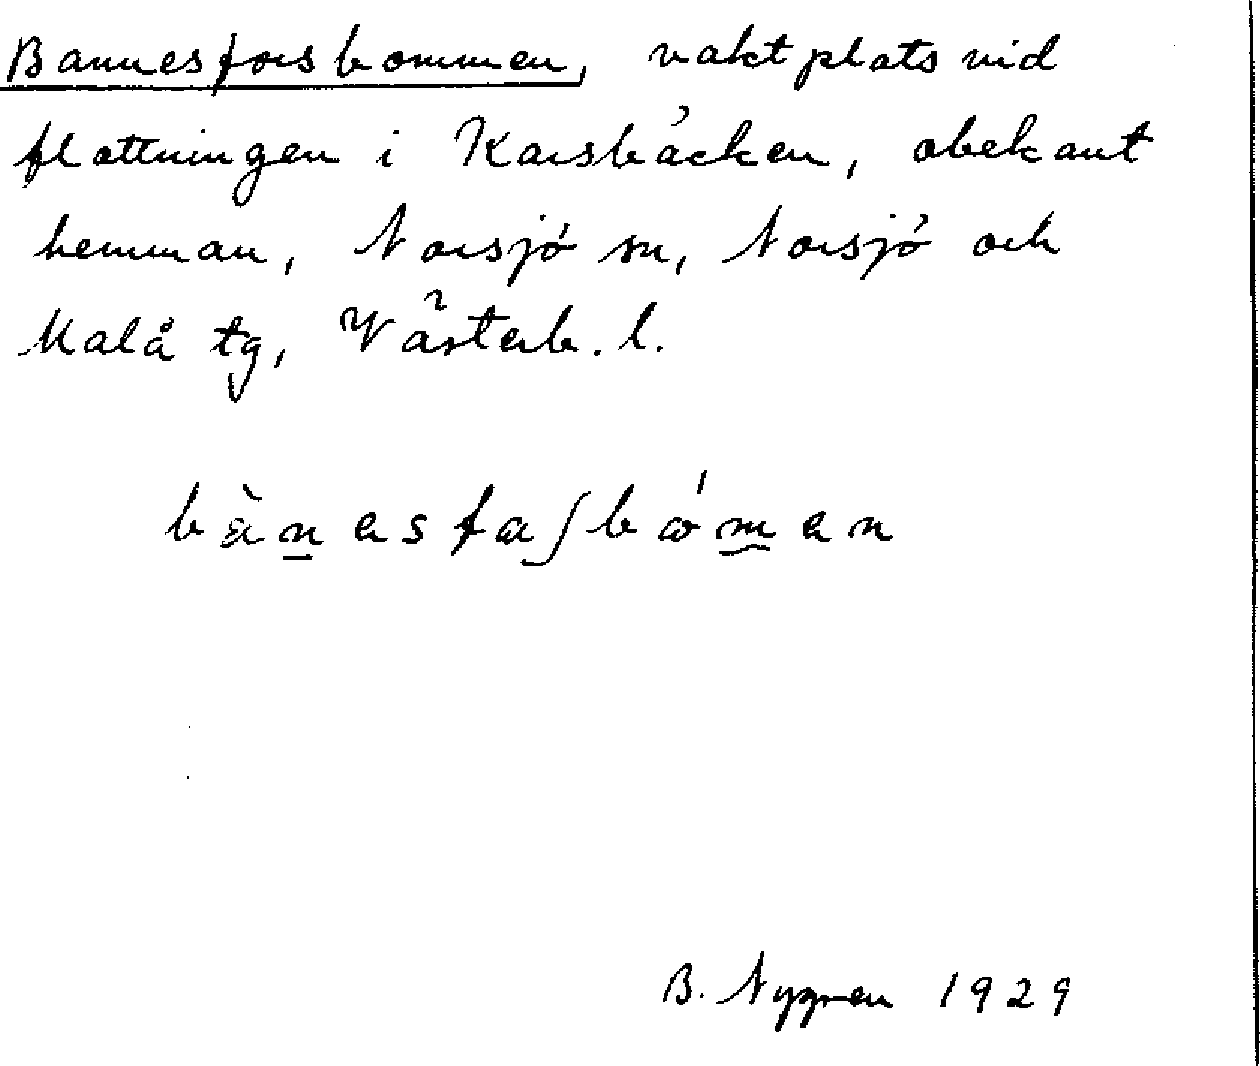 Bannesforsbommen, vaktplats vid
flottningen i Korsbäcken, obekant
hemman, Norsjö sn, Norsjö och
Malå tg, Västerb. l.
B. Nygren 1929